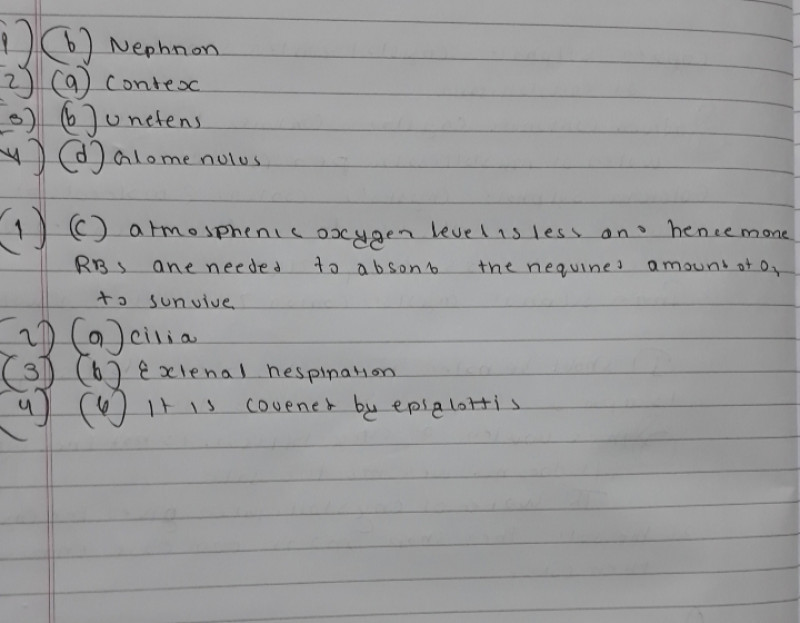 1) (b) Nephron
2) (a) Cortex
3) (b) Ureters
4) (d) Glomerulus
(1) (c) atmospheric oxygen level is less and hence more
RBs are needed to absorb the required amount of O2
to survive
(2) (a) cilia
(3) (b) Exlenal respiration
(4) (b) It is covered by epiglottis